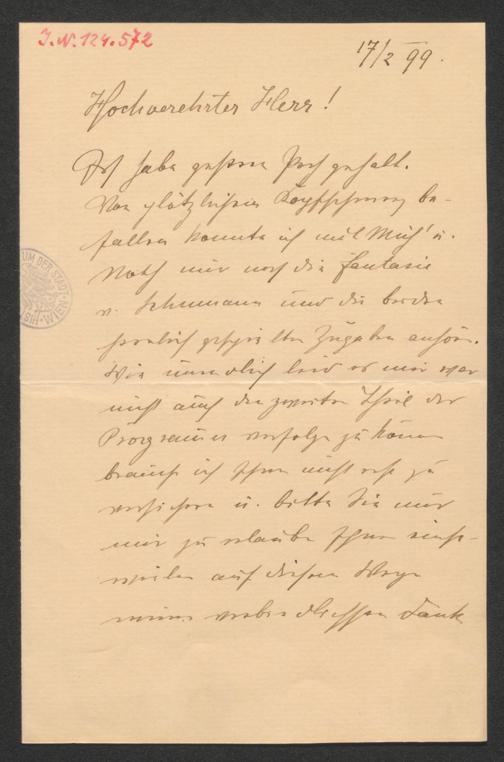 J.N. 124.572
17/2 99.
Hochverehrter Herr!
Ich habe gestern Pech gehabt.
Von plötzlichem Kopfschmerz be-
fallen konnte ich mit Müh' u.
Noth nur noch die Fantasie
v. Schumann und die beiden
herrlich gespielten Zugaben anhören.
Wie unendlich leid es mir war
nicht auch den zweiten Theil des
Programmes verfolgen zu können
brauch ich Ihnen nicht erst zu
versichern u. bitte Sie nur
mir zu erlauben Ihnen einst-
weilen auf diesem Wege
meinen verbindlichsten Dank
UM DER STADT
WIEN
HIS